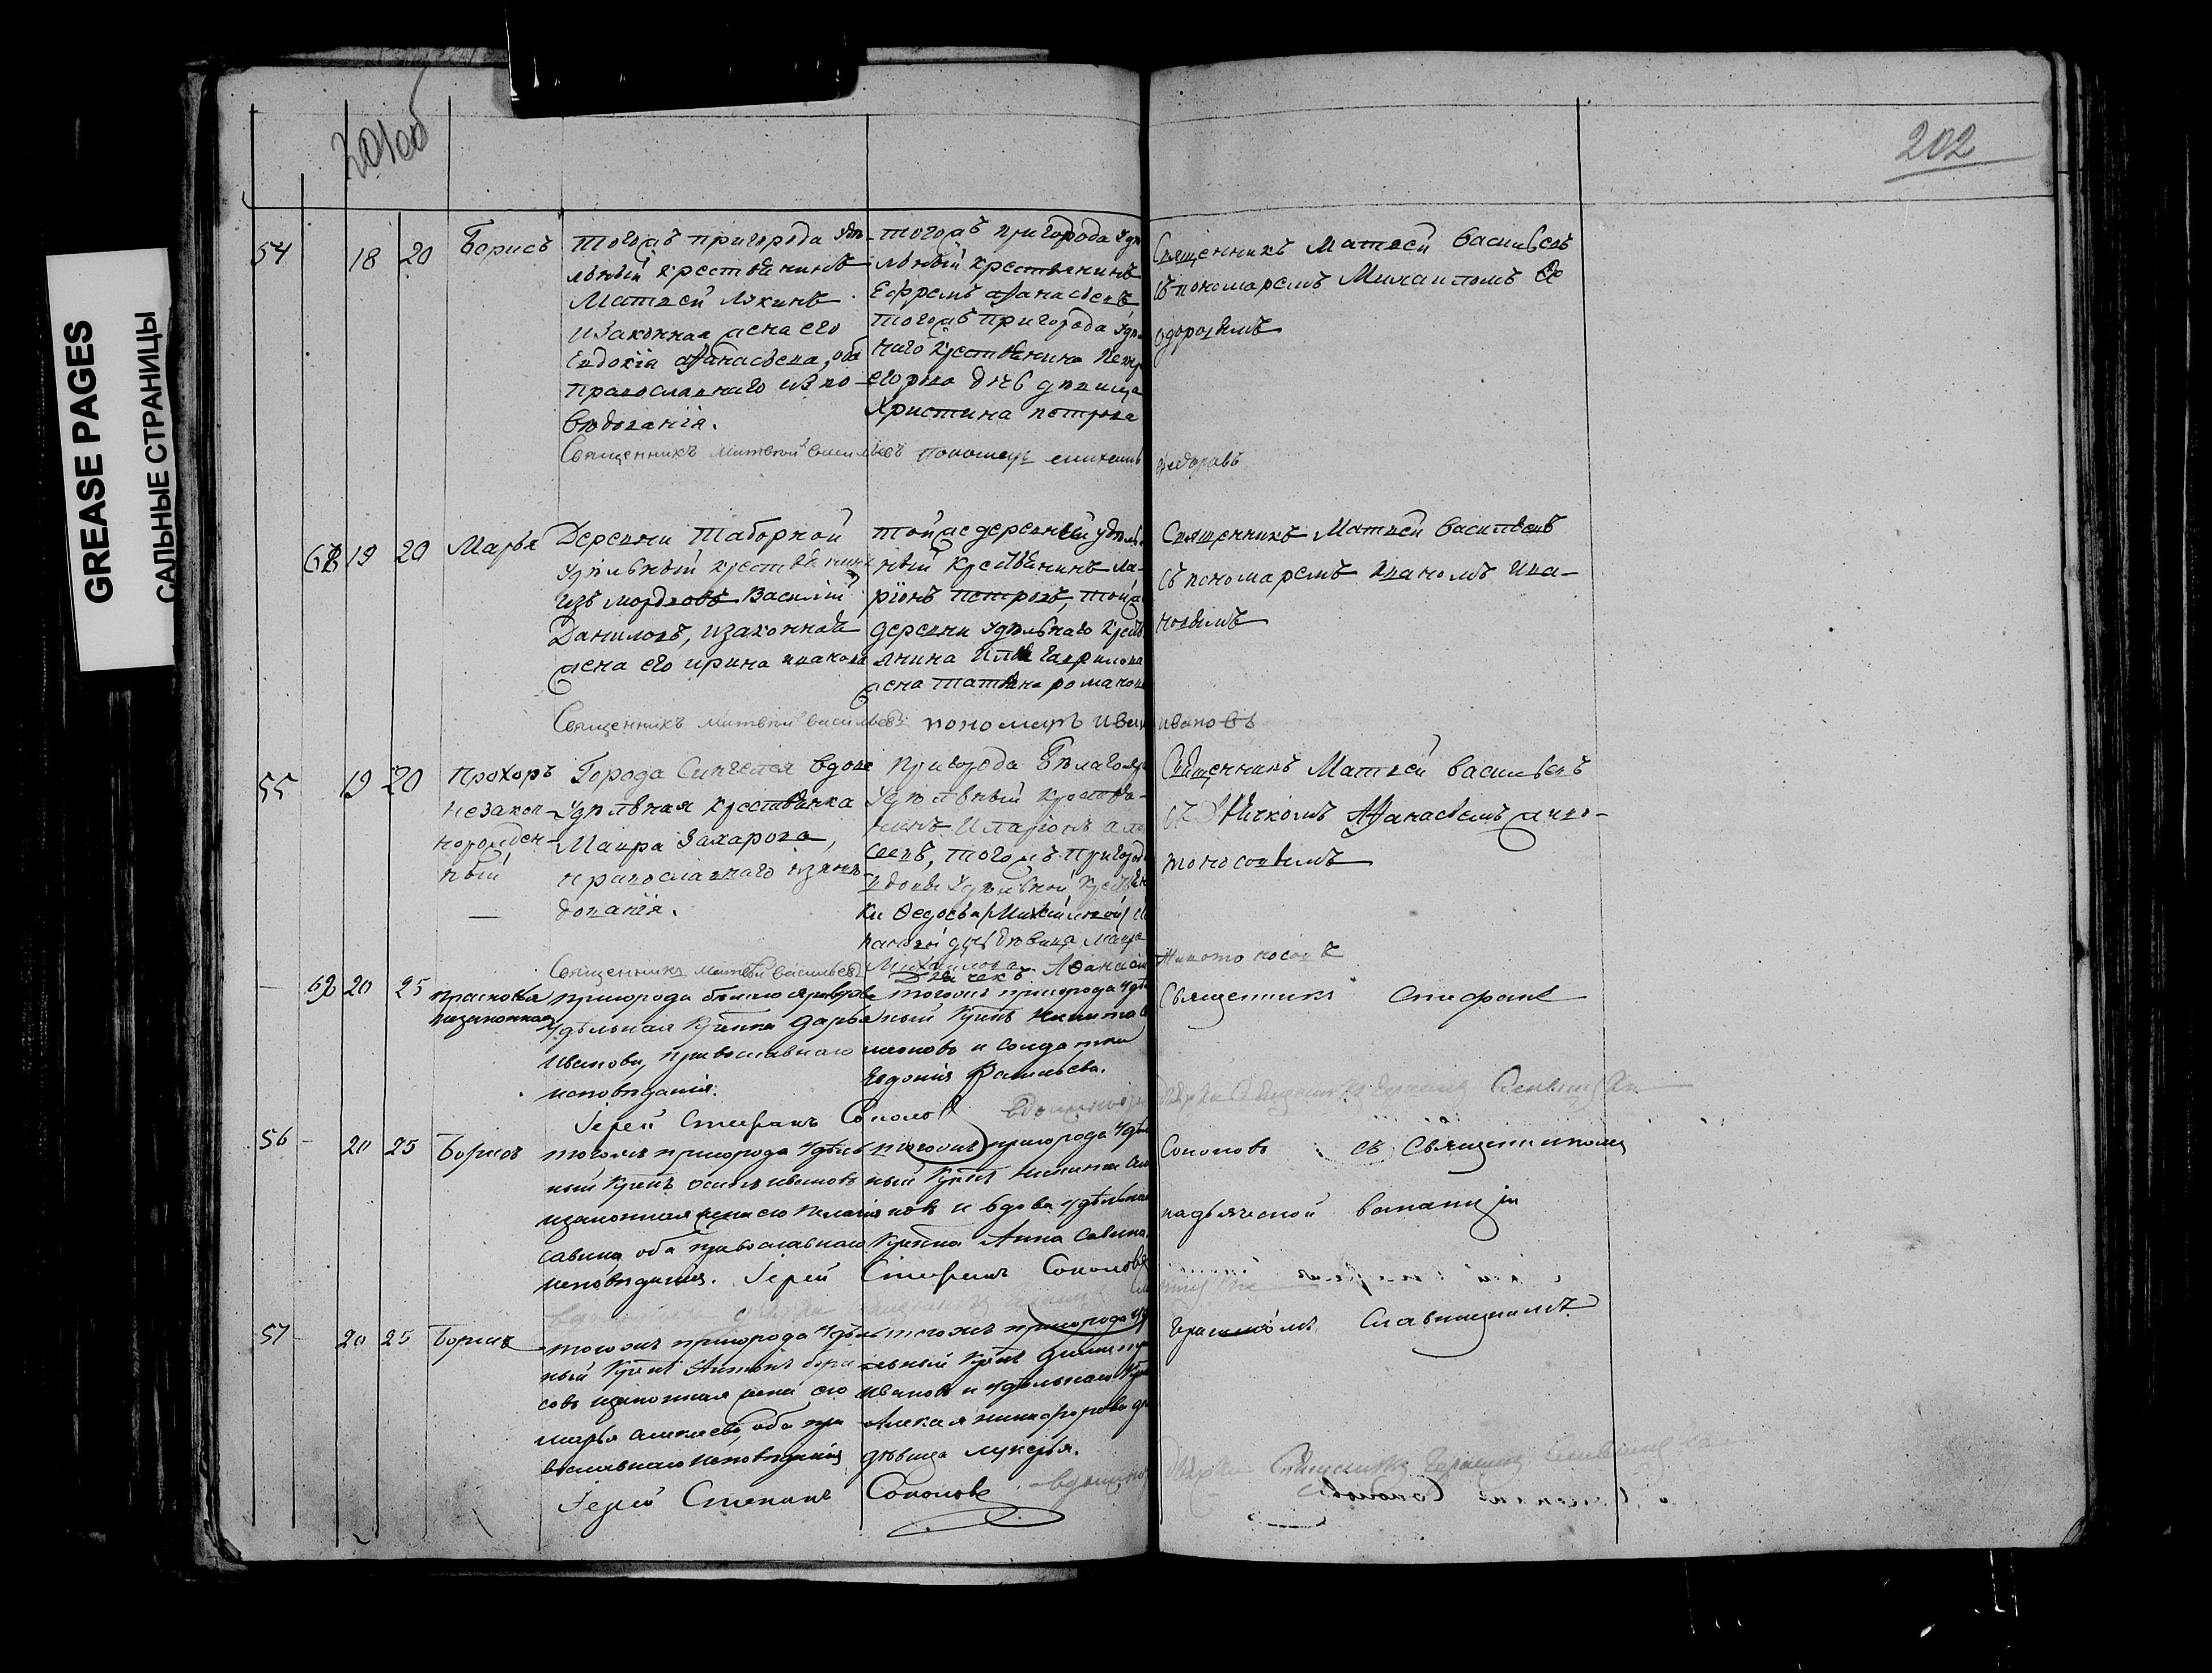 GREASE PAGES
САЛЬНЫЕ СТРАНИЦЫ
201об
202
54 18 20 Борисъ
Тогожъ пригорода удѣ-
льный крестьянинъ
Матвей Лукинъ
и законная жена его
Евдокія Афанасьева, оба
православнаго испо-
вѣданія.
тогожъ пригорода удѣ
льный крестьянинъ
Ефремъ Афанасьевъ
тогожъ пригорода
наго крестьянина Петр
Егорова дочь девица
Христина петрова
Священникъ Матвей Васильевъ
съ пономаремъ Михаиломъ Фе
одоровымъ
Священникъ матвей васильевъ пономарь михаилъ федоровъ
62 19 20 Марья
Деревни Таборной
удѣльный крестьянинъ
изъ мордвовъ Василий
Даниловъ, и законная
жена его ирина иванова
тойже деревни удѣль
ный крестьянинъ Ла-
ріонъ петровъ, тойж
деревни удѣльнаго крест
янина Ильи Гаврилова
жена татьяна романова
Священникъ Матвей Васильевъ
съ пономаремъ Иваномъ Ива-
новымъ
Священникъ матвей васильевъ пономарь Иван ивановъ
55 19 20 Прохоръ
незакон-
норожден-
ный
Города Сингелея вдова
Удѣльная крестьянка
Мавра Захарова,
православнаго исповѣ-
данія.
Пригорода Бѣлагояр
Удѣльный крестья-
нинъ Иларіонъ але
сеевъ, тогожъ пригорода
вдовы Удѣльной крестьян
ки Федосьи Михайловой
дочь дѣвица Мавра
Михайлова.
Священникъ Матвей Васильевъ
съ Дьячкомъ Афанасьемъ живо-
тоносовымъ
Священникъ матвей васильевъ Дьячекъ Афанасий Животоносовъ
62 20 25 Прасковья
незаконная
пригорода бѣлаго яра вдова
удѣльная Крѣнка Дарья
Иванова, православнаго
исповѣданія.
тогожъ пригорода удѣ
ный Крнъ Никита
ионовъ и солдатка
Евдокия Васильева.
Священникъ Стефанъ
Іерей Стефанъ Соколов
56 20 25 Борисъ
тогожъ пригорода удѣль
ный Крнъ осипъ ивановъ
и законная жена его Пелагия
савина оба православнаго
исповѣдания.
тогожъ пригорода удѣль
ный Крнъ Никита
новъ и вдова удѣльная
Крнка Анна Савина.
Соколовъ съ Священникомъ
надъяческой ваканціи
Іерей Стефанъ Соколовъ
57 20 25 Борисъ
тогожъ пригорода удѣль
ный Крнъ Антонъ бори
совъ и законная жена его
марья алексеева, оба пра
вославнаго исповѣдания
тогожъ пригорода уд
ельный Крнъ Димитр
Ивановъ и удѣльнаго Крн
Алексея никифорова до
дѣвица лукерья.
Герасимомъ Славницкимъ
Іерей Стефанъ Соколовъ